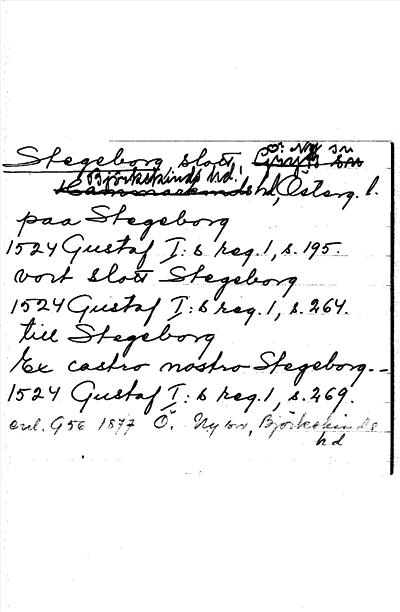 Stegeborg, slott, Ö. Ny sn
Björkekinds hd., Österg. l.
paa Stegeborg
1524 Gustaf I:s reg. 1, s. 195.
vort slott Stegeborg
1524 Gustaf I:s reg. 1, s. 264.
till Stegeborg
Ex castro nostro Stegeborg --
1524 Gustaf I:s reg. 1, s. 269.
enl. GSE 1877 Ö. Ny sn, Björkekinds
hd